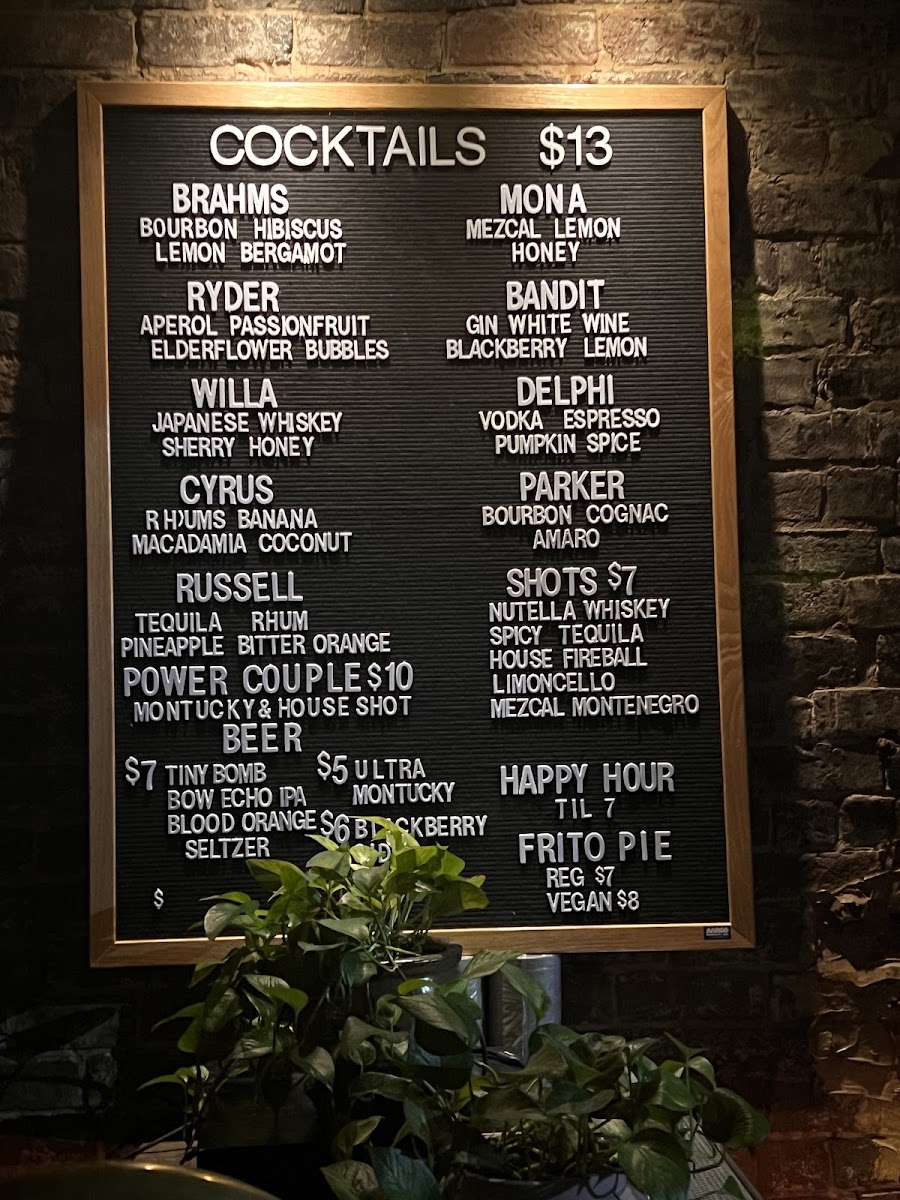 COCKTAILS $13
BRAHMS
BOURBON HIBISCUS
LEMON BERGAMOT
RYDER
APEROL PASSIONFRUIT
ELDERFLOWER BUBBLES
WILLA
JAPANESE WHISKEY
SHERRY HONEY
CYRUS
RHUMS BANANA
MACADAMIA COCONUT
RUSSELL
TEQUILA RHUM
PINEAPPLE BITTER ORANGE
POWER COUPLE $10
MONTUCKY & HOUSE SHOT
BEER
$7 TINY BOMB
BOW ECHO IPA
BLOOD ORANGE
SELTZER
$5 ULTRA
MONTUCKY
$6
$
MONA
MEZCAL LEMON
HONEY
BANDIT
GIN WHITE WINE
BLACKBERRY LEMON
DELPHI
VODKA ESPRESSO
PUMPKIN SPICE
PARKER
BOURBON COGNAC
AMARO
SHOTS $7
NUTELLA WHISKEY
SPICY TEQUILA
HOUSE FIREBALL
LIMONCELLO
MEZCAL MONTENEGRO
HAPPY HOUR
TIL 7
FRITO PIE
REG $7
VEGAN $8